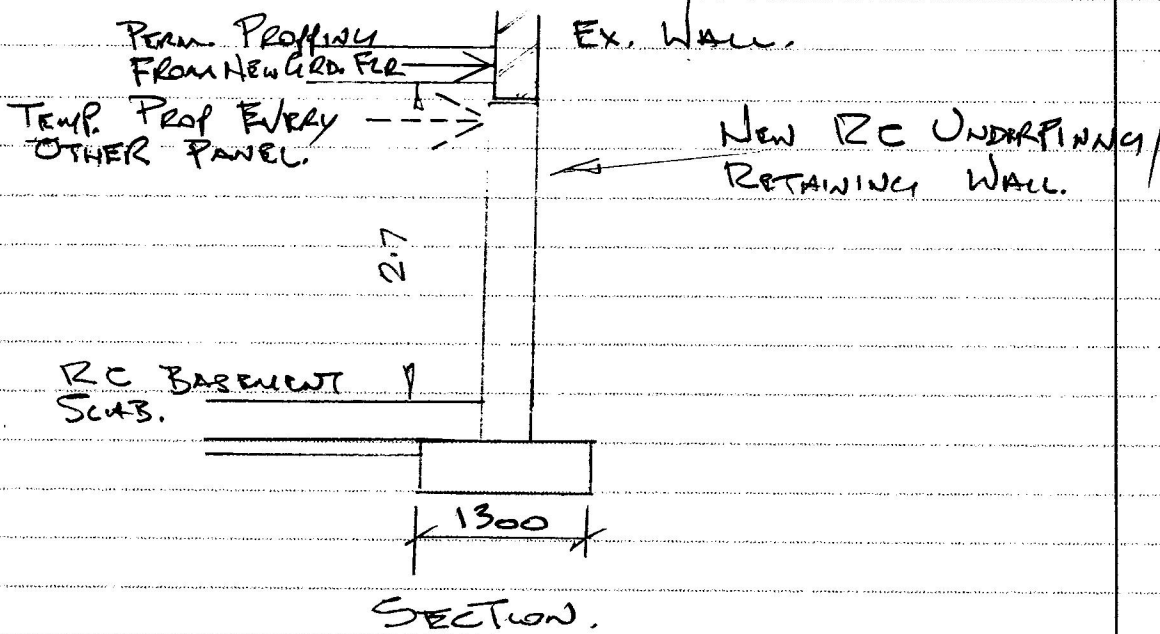 PERM. PROPPING
FROM NEW GRD. FLR
EX. WALL.
TEMP. PROP EVERY
OTHER PANEL.
NEW RC UNDERPINNG/
RETAINING WALL.
2.7
RC BASEMENT
SLAB.
1300
SECTION.